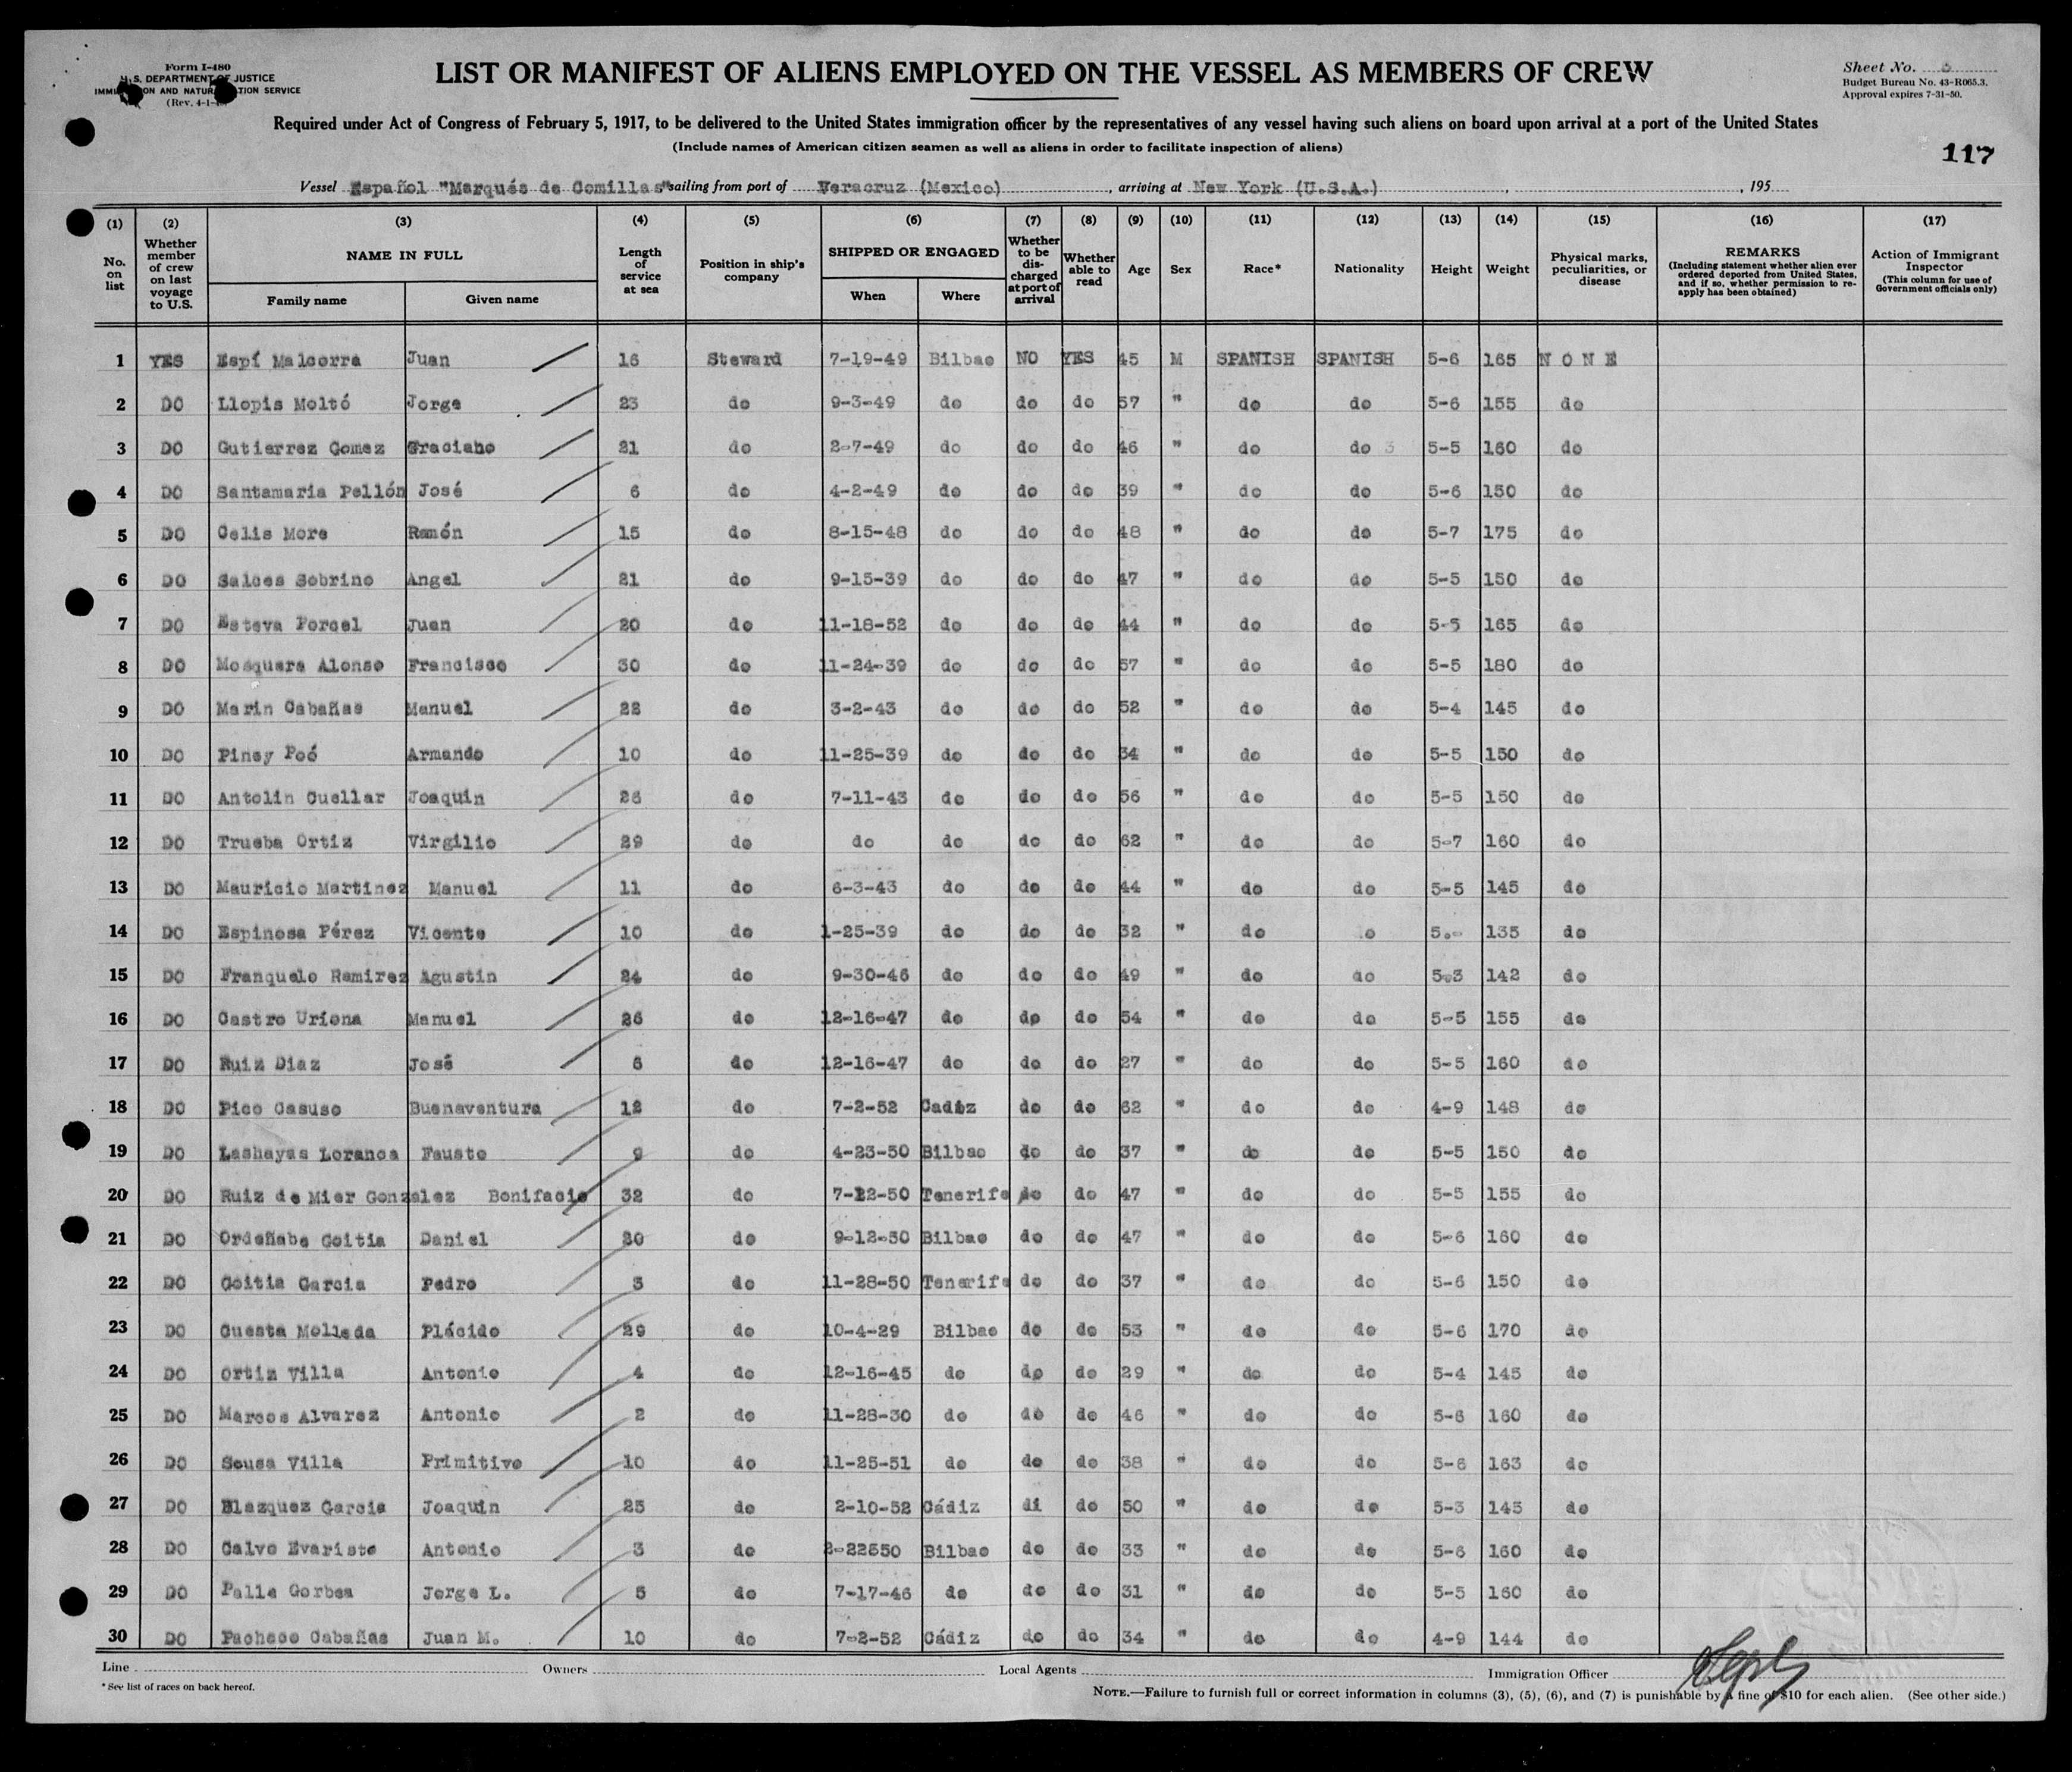 Form I-480
U.S. DEPARTMENT OF JUSTICE
IMMI ON AND NATUR TION SERVICE
(Rev. 4-1-
LIST OR MANIFEST OF ALIENS EMPLOYED ON THE VESSEL AS MEMBERS OF CREW
Sheet No.
Budget Bureau No. 43-R065.3.
Approval expires 7-31-50.
Required under Act of Congress of February 5, 1917, to be delivered to the United States immigration officer by the representatives of any vessel having such aliens on board upon arrival at a port of the United States
(Include names of American citizen seamen as well as aliens in order to facilitate inspection of aliens)
117
Vessel Español "Marqués de Comillas" sailing from port of Veracruz (Mexico), arriving at New York (U.S.A.), , 195
(1) (2) (3) (4) (5) (6) (7) (8) (9) (10) (11) (12) (13) (14) (15) (16) (17)
No. on list
Whether member of crew on last voyage to U.S.
NAME IN FULL
Family name
Given name
Length of service at sea
Position in ship's company
SHIPPED OR ENGAGED
When
Where
Whether to be discharged at port of arrival
Whether able to read
Age
Sex
Race*
Nationality
Height
Weight
Physical marks, peculiarities, or disease
REMARKS
(Including statement whether alien ever ordered deported from United States, and if so, whether permission to re-apply has been obtained)
Action of Immigrant Inspector
(This column for use of Government officials only)
1 YES Espí Malcorra Juan 16 Steward 7-19-49 Bilbao NO YES 45 M SPANISH SPANISH 5-6 165 N O N E
2 DO Llopis Moltó Jorge 23 do 9-3-49 do do do 57 " do do 5-6 155 do
3 DO Gutierrez Gomez Graciano 21 do 2-7-49 do do do 46 " do do 3 5-5 160 do
4 DO Santamaria Pellón José 6 do 4-2-49 do do do 39 " do do 5-6 150 do
5 DO Celis More Ramón 15 do 8-15-48 do do do 48 " do do 5-7 175 do
6 DO Salces Sobrino Angel 21 do 9-15-39 do do do 47 " do do 5-5 150 do
7 DO Esteva Porcel Juan 20 do 11-18-52 do do do 44 " do do 5-5 165 do
8 DO Mosquera Alonso Francisco 30 do 11-24-39 do do do 57 " do do 5-5 180 do
9 DO Marin Cabañas Manuel 22 do 3-2-43 do do do 52 " do do 5-4 145 do
10 DO Piney Poó Armando 10 do 11-25-39 do do do 34 " do do 5-5 150 do
11 DO Antolin Cuellar Joaquin 26 do 7-11-43 do do do 56 " do do 5-5 150 do
12 DO Trueba Ortiz Virgilio 29 do do do do do 62 " do do 5-7 160 do
13 DO Mauricio Martinez Manuel 11 do 6-3-43 do do do 44 " do do 5-5 145 do
14 DO Espinosa Pérez Vicente 10 do 1-25-39 do do do 32 " do o 5.- 135 do
15 DO Franquelo Ramirez Agustin 24 do 9-30-46 do do do 49 " do do 5-3 142 do
16 DO Castro Uriona Manuel 26 do 12-16-47 do do do 54 " do do 5-5 155 do
17 DO Ruiz Diaz José 6 do 12-16-47 do do do 27 " do do 5-5 160 do
18 DO Pico Casuso Buenaventura 12 do 7-2-52 Cadiz do do 62 " do do 4-9 148 do
19 DO Lashayas Loranca Fausto 9 do 4-23-50 Bilbao do do 37 " do do 5-5 150 do
20 DO Ruiz de Mier Gonzalez Bonifacio 32 do 7-12-50 Tenerife do do 47 " do do 5-5 155 do
21 DO Ordeñabe Goitia Daniel 30 do 9-12-50 Bilbao do do 47 " do do 5-6 160 do
22 DO Goitia Garcia Pedro 3 do 11-28-50 Tenerife do do 37 " do do 5-6 150 do
23 DO Cuesta Molleda Plácido 29 do 10-4-29 Bilbao do do 53 " do do 5-6 170 do
24 DO Ortiz Villa Antonio 4 do 12-16-45 do do do 29 " do do 5-4 145 do
25 DO Marcos Alvarez Antonio 2 do 11-28-30 do do do 46 " do do 5-6 160 do
26 DO Sousa Villa Primitivo 10 do 11-25-51 do do do 38 " do do 5-6 163 do
27 DO Blazquez Garcia Joaquin 25 do 2-10-52 Cádiz di do 50 " do do 5-3 145 do
28 DO Calvo Evaristo Antonio 3 do 2-22550 Bilbao do do 33 " do do 5-6 160 do
29 DO Palla Gorbea Jorge L. 5 do 7-17-46 do do do 31 " do do 5-5 160 do
30 DO Pacheco Cabañas Juan M. 10 do 7-2-52 Cádiz do do 34 " do do 4-9 144 do
Line Owners Local Agents Immigration Officer
* See list of races on back hereof.
NOTE.—Failure to furnish full or correct information in columns (3), (5), (6), and (7) is punishable by a fine of $10 for each alien. (See other side.)